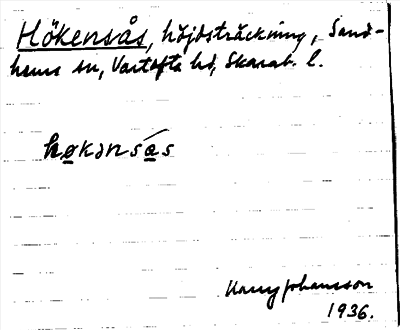 Hökensås, höjdsträckning, Sand-
hems sn, Vartofta hd, Skarab. l.
høkənsås
Harry Johansson
1936.